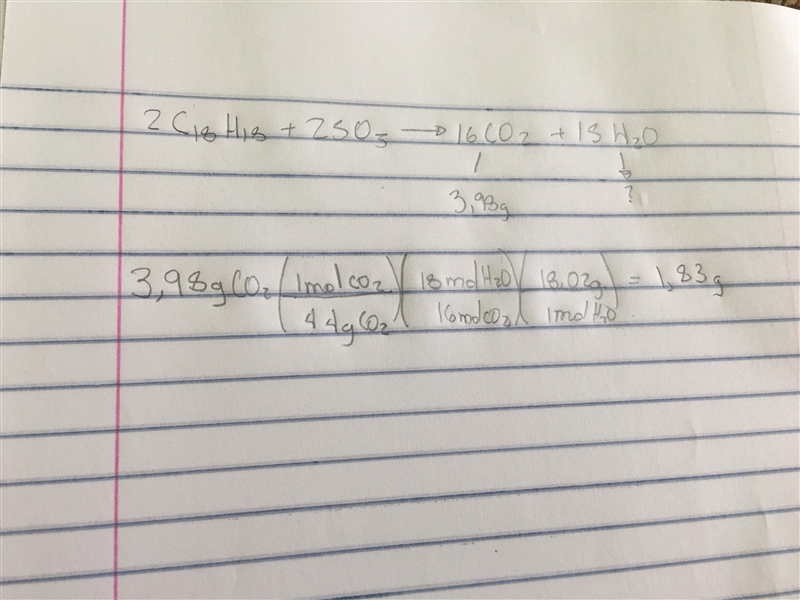 2 C₁₈ H₁₈ + 2 5 O₅ → 16 CO₂ + 18 H₂O
3,98g ?
3,98g CO₂ (1 mol CO₂ / 44g CO₂) (18 mol H₂O / 16 mol CO₂) (18.02g / 1 mol H₂O) = 1,83 g